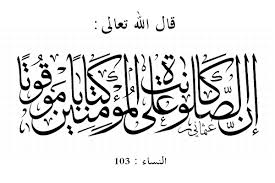 قال الله تعالى :
إِنَّ الصَّلَوةَ كَانَتْ عَلَى الْمُؤْمِنِينَ كِتَابًا مَوْقُوتًا
النساء : 103